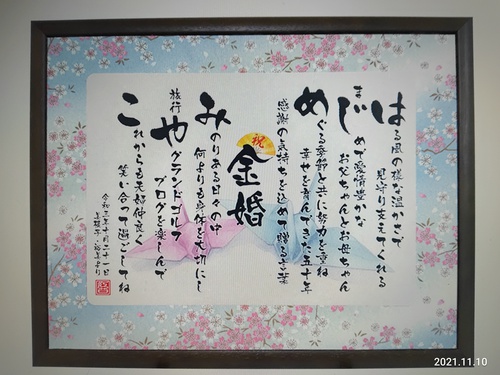 はる風の様な温かさで
見守り支えてくれる
まじめで愛情豊かな
お父ちゃんとお母ちゃん
めぐる季節と共に努力を重ね
幸せを きた五十年
感謝の気持ちを込めて贈る言葉
祝
金婚
みのりある日々の中
何よりも身体を大切にし
旅行やグランドゴルフ
ブログを楽しんで
これからも夫婦仲良く
笑い合って過ごしてね
令和三年十月二十一日
より
2021.11.10